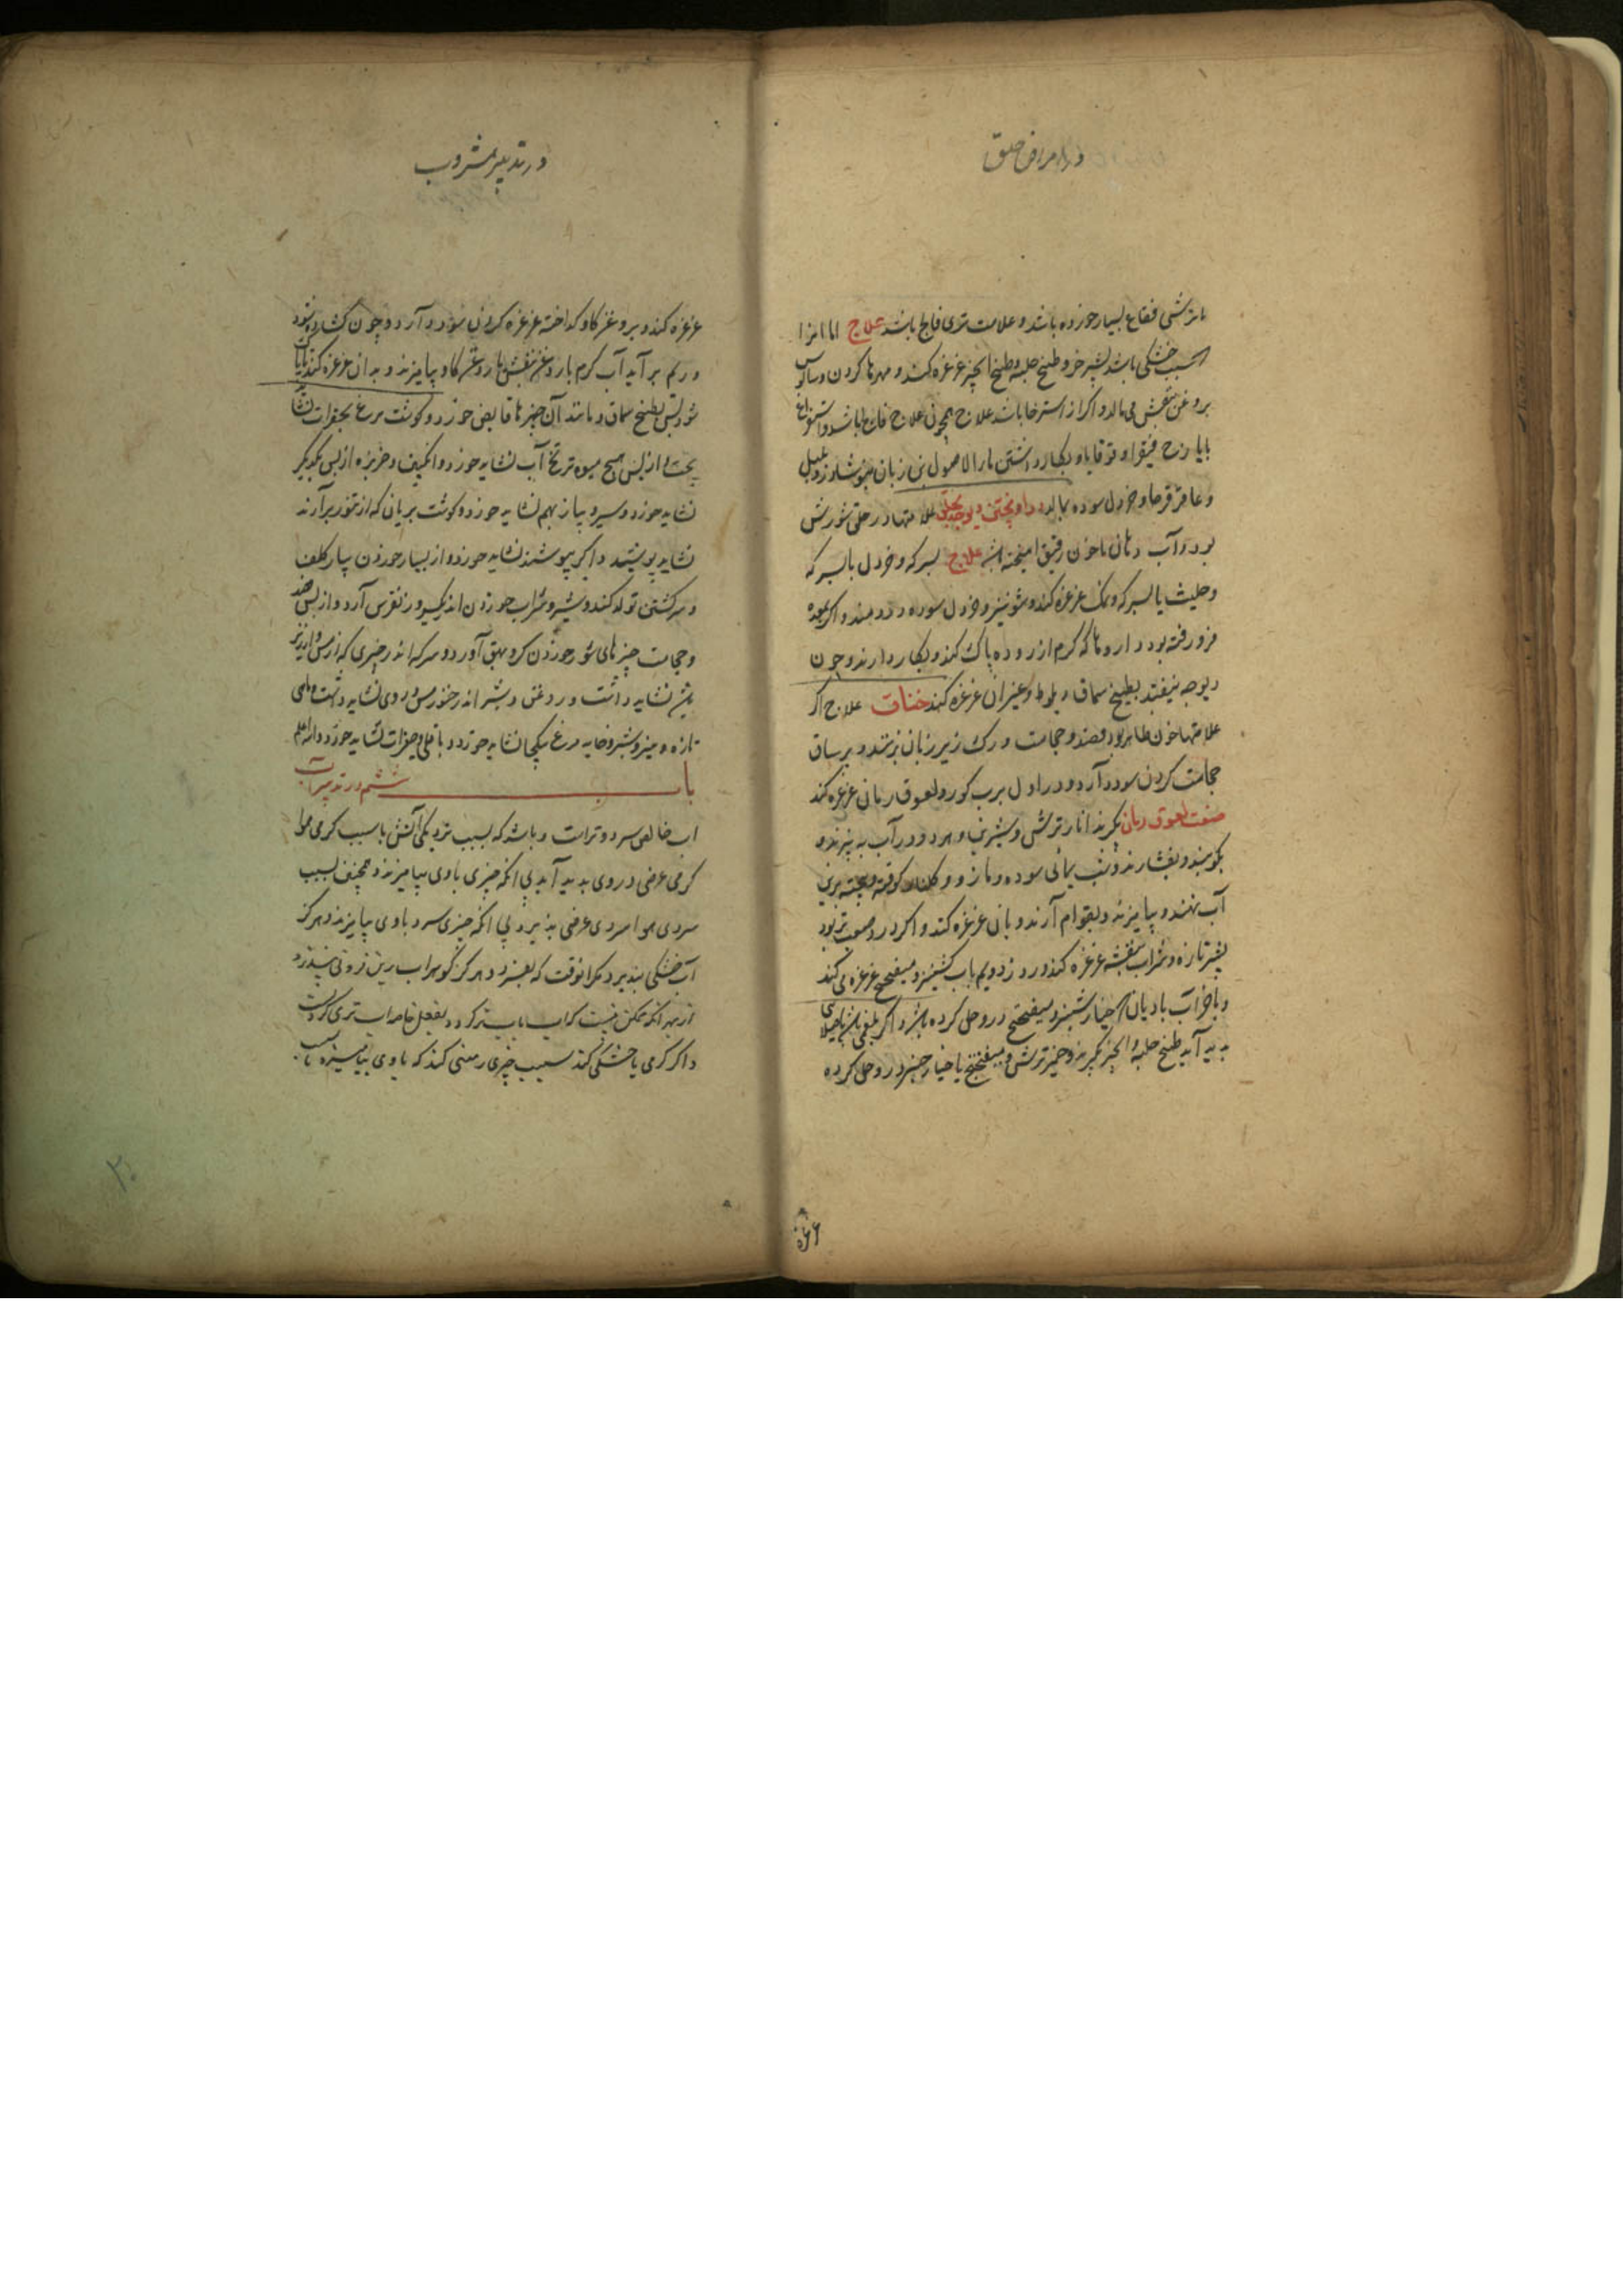 در امراض حلق
باترشی فقاع بسیار خورده باشد و علامت تری فالج باشد علاج اما انرا
کسبب خشکی باشد بشیر خر و طبیخ حلبه و طبیخ انجیر غرغره کند و مهرها کردن و ساق
بروغن بنفش می مالد و اکر از استرخا باشد علاج همچون علاج فالج باشد و استفراغ
بایارج فیقرا و قوقایا و بکار داشتن ماء الاصول بن زبان بنوشادر و زنجبیل
و عاقرقرحا و خردل سوده بمالد علامتها در حلق شورش
بود و آب دهان با خون رقیق امیخته باشد علاج بسرکه و خردل با سرکه
و حلتیث با سرکه و نمک غرغره کند و شونیز و خردل سوده در دمند و اکر بمعده
فرو رفته بود داروها که کرم از روده پاک کند و بکار دارند و چون
دیوچه بیفتد بطبیخ سماق و بلوط و غیران غرغره کند خناق علاج اکر
علامتها خون ظاهر بود فصد و حجامت و رک زیر زبان بزنند و بر ساق
حجامت کردن سود دارد و در اول برب کوز و لعوق رمانی غرغره کند
صفت لعوق رمان بکیرند انار ترش و شیرین و هر دو در آب به پزند و
بکوبند و بفشارند و شب یمانی سوده و مازو و کلنار کوفته و بیخته برین
آب نهند و بیامیزند و بقوام آرند و بان غرغره کند و اکر درد صعب تر بود
بشیر تازه و شراب بنفشه غرغره کند و روز دویم باب کشنیز و میفختج غرغره می کند
و باخر آب بادیان و خیارشنبر و میفختج در وحل کرده باشد و اکر بلغمی باشد
پدید آید طبیخ حلبه و انجیر بکیرند و خمیر ترش و میفختج با خیارچنبر در وحل کرده
در تدبیر مشروب
غرغره کند و بروغن کاو کداخته غرغره کردن سود دارد و چون کشاده شود
و ریم بر آید آب کرم با روغن بنفش یا روغن کاو بیامیزند و بدان غرغره کند تا پاک
شود پس بطبیخ سماق و مانند آن چیزها قابض خورد و کوشت مرغ بجغرات نشاید
پخت و از پس هیچ میوه تر یخ آب نشاید خورد و انکبین و خربزه از پس یکدیکر
نشاید خورد و سیر و پیاز بهم نشاید خورد و کوشت بریانی که از تنور برآرند
نشاید پوشید و اکر بپوشند نشاید خورد و از بسیار خوردن پیاز کلف
و سرکشتن تولد کند و شیر و شراب خوردن اندر یکسیر و ز نقرس آرد و از پس فصد
و حجامت چیزهای شور خوردن کر و بهق آورد و سرکه اندر چیزی که از مس و ارزیز
نشاید داشت و روغن و شیر اندر خنور مس و روی نشاید داشت و ماهی
تازه و پنیر و شیر و خایه مرغ یکجا نشاید خورد و باقلی و جغرات نشاید خورد والله اعلم
باب ششم در تدبیر آب
اب خالص سرد و تر است و باشد که بسبب نزدیکی آتش یا سبب کرمی هوا
کرمی عرضی در وی پدید آید بی انکه چیزی با وی بیامیزند و همچنین بسبب
سردی هوا سردی عرضی پذیرد بی انکه چیزی سرد با وی بیامیزند و هرکز
آب خشکی نپذیرد مکر انوقت که بفسرد و هرکز کوهر اب فزونی نپذیرد
از بهر انکه ممکن نیست کز اب تر کردد و بفعل خاصه اب تری کردن است
و اکر کرمی یا خشکی کند سبب چیزی رمعنی کند که با وی بیامیزد یا بسبب
۲۰